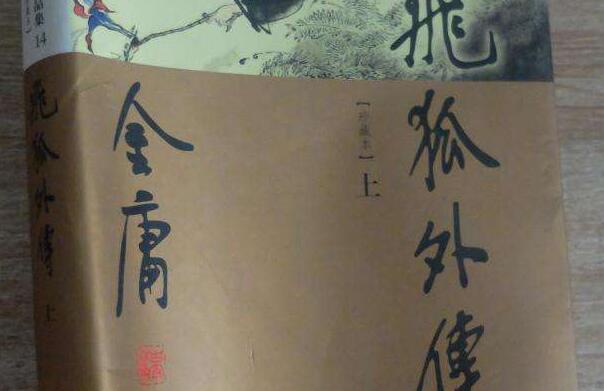 飛狐外傳
【珍藏本】上
金庸
飛狐外傳 上
品集 14